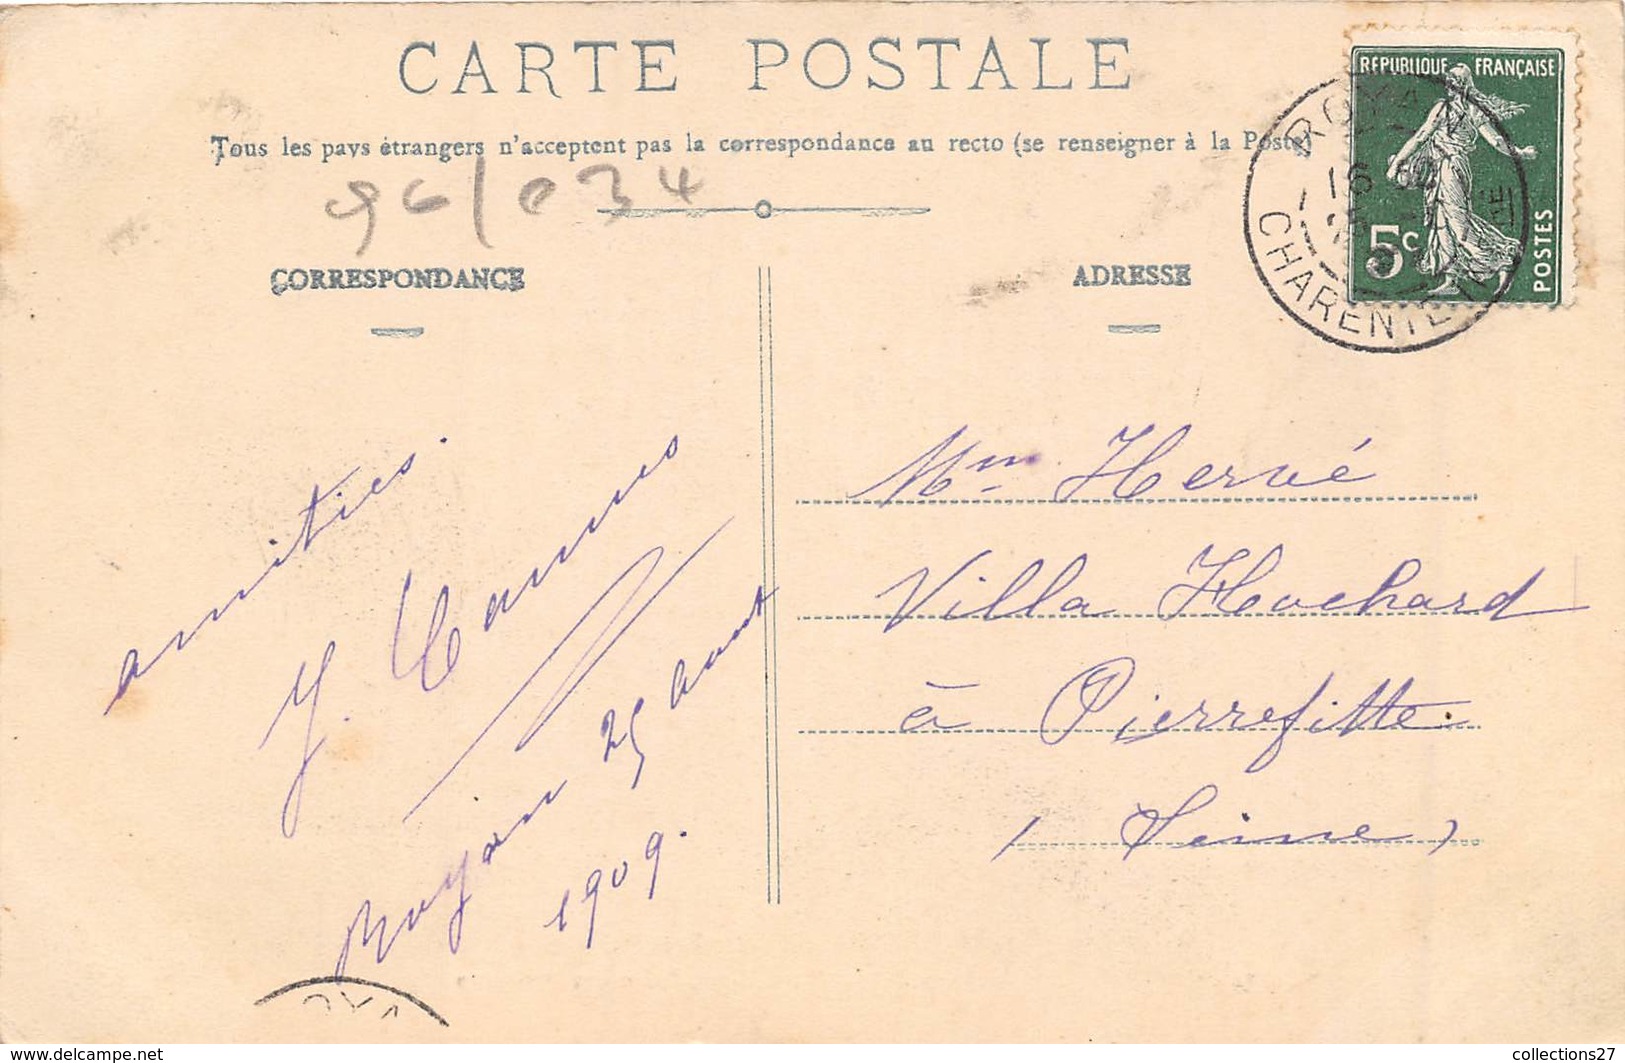 CARTE POSTALE
Tous les pays étrangers n'acceptent pas la correspondance au recto (se renseigner à la Poste)
96/034
CORRESPONDANCE
ADRESSE
RÉPUBLIQUE FRANÇAISE
5c
POSTES
ROYAN
16
CHARENTE
amitiés.
J.
Royan 25 Aout
1909.
Mme Hervé
Villa Hochard
à Pierrefitte.
(Seine)
www.delcampe.net
collections27